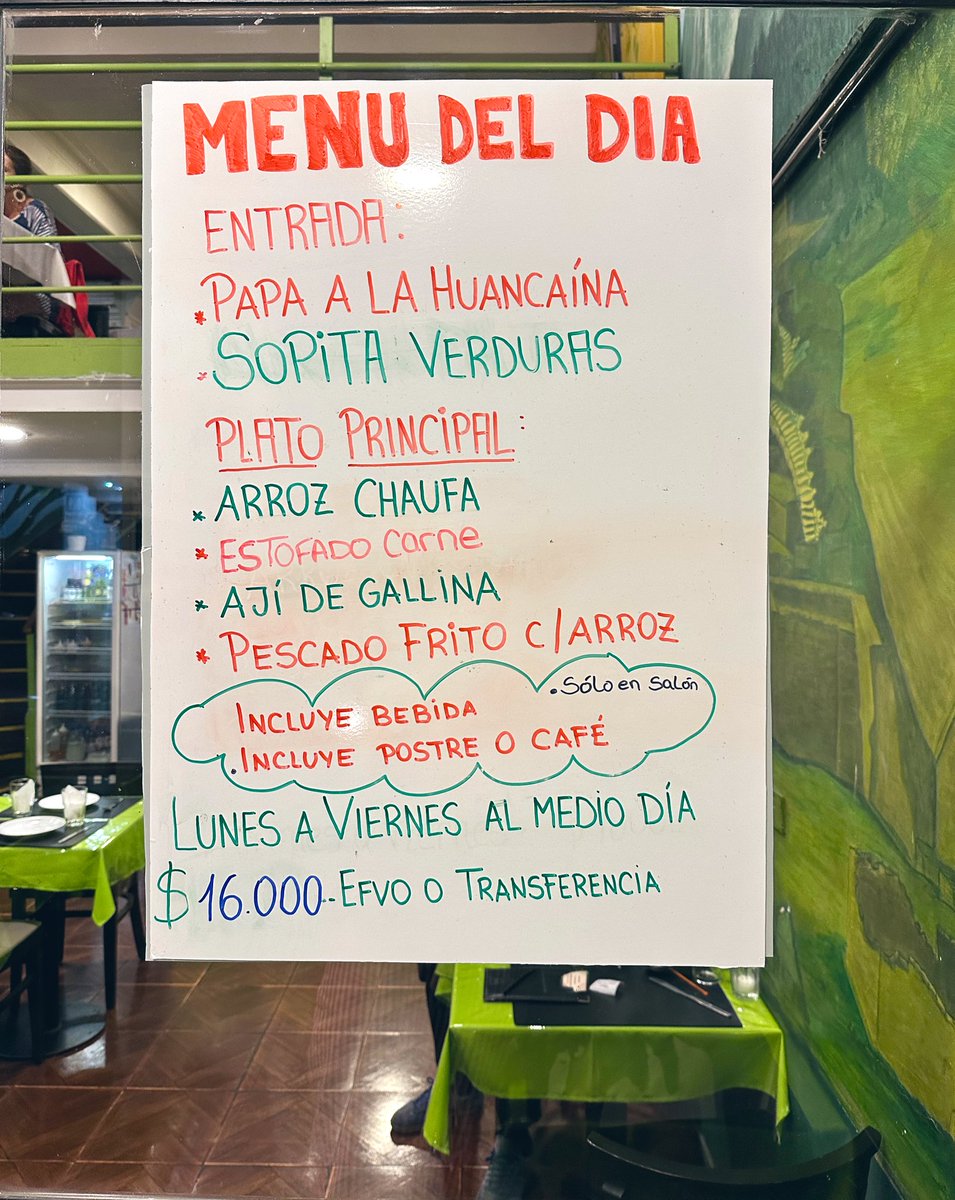 MENU DEL DIA
ENTRADA:
* PAPA A LA HUANCAÍNA
* SOPITA VERDURAS
PLATO PRINCIPAL:
* ARROZ CHAUFA
* ESTOFADO Carne
* AJÍ DE GALLINA
* PESCADO FRITO C/ARROZ
. Sólo en Salón
INCLUYE BEBIDA
. INCLUYE POSTRE O CAFÉ
LUNES A VIERNES AL MEDIO DÍA
$16.000.- EFVO O TRANSFERENCIA